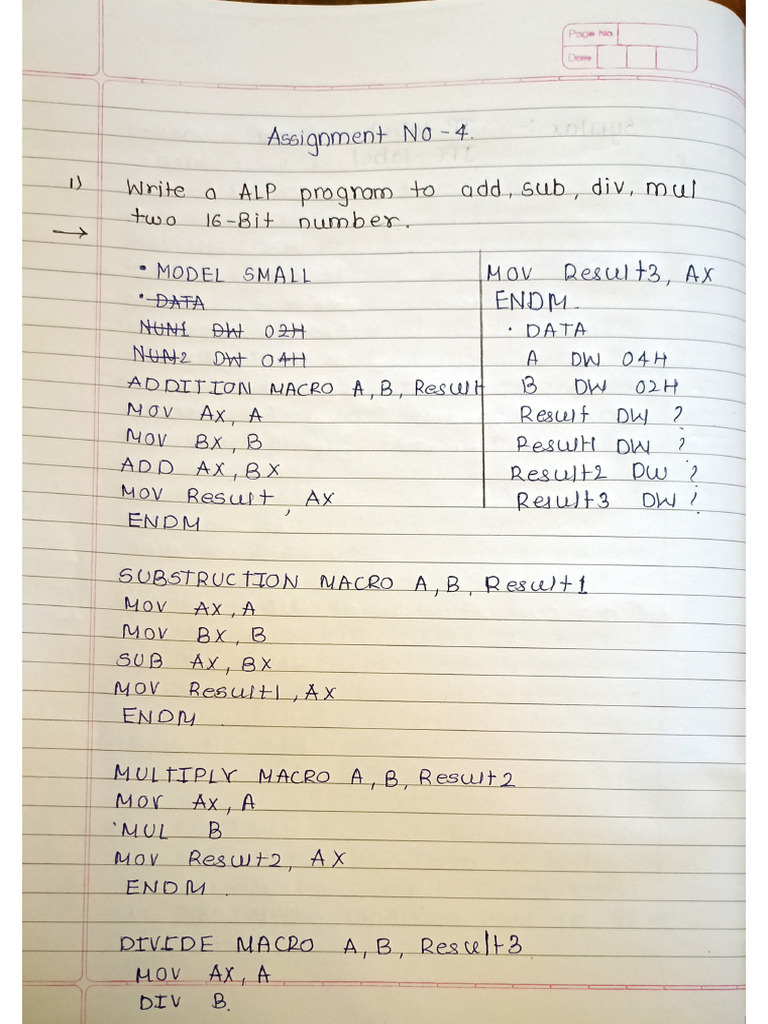 Page No.
Date
Assignment No - 4.
1) Write a ALP program to add, sub, div, mul
two 16-Bit number.
→
• MODEL SMALL
• DATA
NUM1 DW 02H
NUM2 DW 04H
ADDITION MACRO A, B, Result
MOV AX, A
MOV BX, B
ADD AX, BX
MOV Result, AX
ENDM
SUBSTRUCTION MACRO A, B, Result1
MOV AX, A
MOV BX, B
SUB AX, BX
MOV Result1, AX
ENDM
MULTIPLY MACRO A, B, Result2
MOV AX, A
MUL B
MOV Result2, AX
ENDM.
DIVIDE MACRO A, B, Result3
MOV AX, A
DIV B.
MOV Result3, AX
ENDM.
• DATA
A DW 04H
B DW 02H
Result DW ?
Result1 DW ?
Result2 DW ?
Result3 DW ?